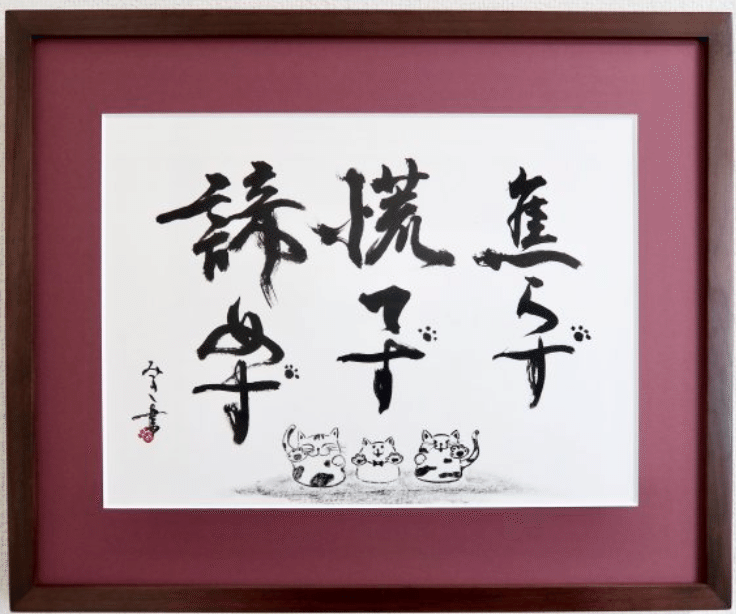 焦らず
慌てず
諦めず
みきこ書